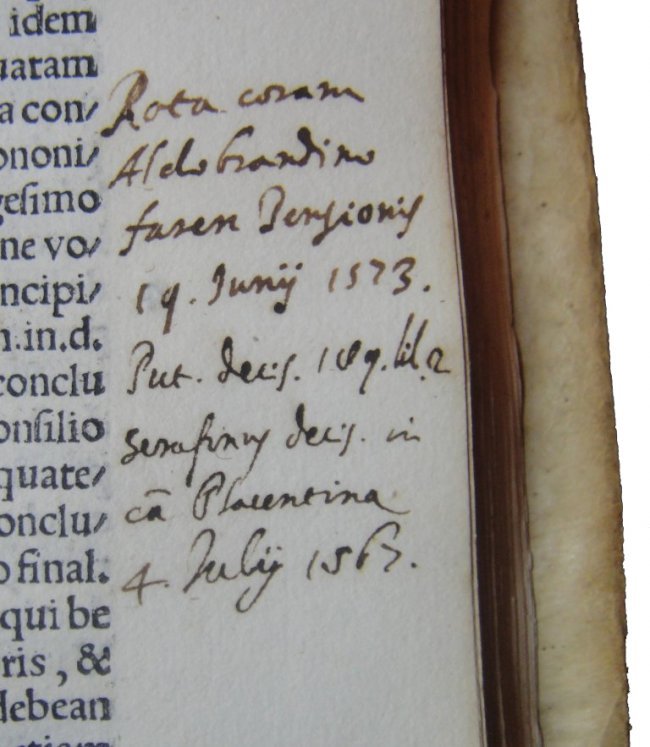 idem
uatam
a con/
ononi/
gesimo
ne vo/
ncipi/
n.in.d.
conclu
onsilio
quate/
onclu/
o final.
qui be
ris, &
debean
Rota coram
Aldobrandino
Pensionis
19. Junij 1573.
Put. decis. 189. lib. 2
Serafinus decis. in
cā Placentina
4. Julij 1563.